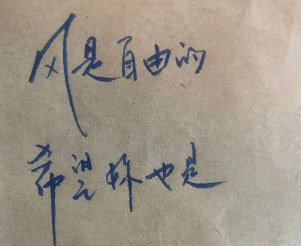 风是自由的
希望你也是